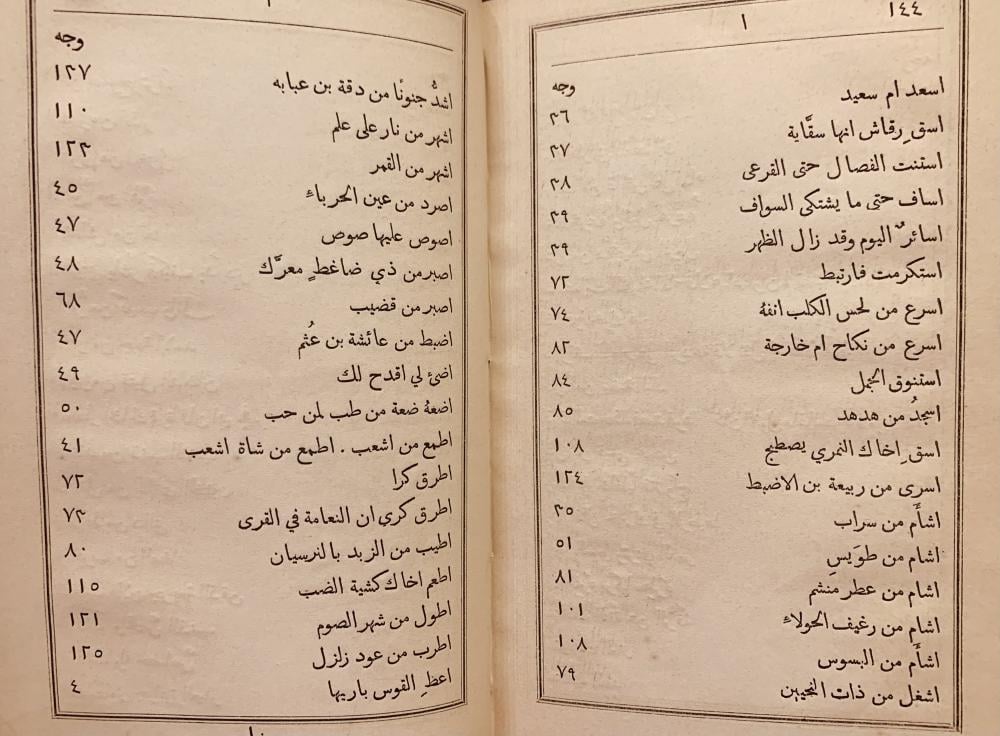 ١٤٤ ا
وجه
اسعد ام سعيد ٣٦
اسقِ رقاش انها سقَّاية ٣٧
استنت الفصال حتى القرعى ٣٨
اساف حتى ما يشتكى السواف ٣٩
اسائرٌ اليوم وقد زال الظهر ٣٩
استكرمت فارتبط ٧٢
اسرع من لحس الكلب انفهُ ٧٤
اسرع من نكاح ام خارجة ٨٢
استنوق الجمل ٨٤
اسجدُ من هدهد ٨٥
اسقِ اخاك النمري يصطبح ١٠٨
اسرى من ربيعة بن الاضبط ١٢٤
اشأَم من سراب ٣٥
اشام من طوَيسِ ٥١
اشام من عطر منشم ٨١
اشام من رغيف الحولاءِ ١٠١
اشأَم من البسوس ١٠٨
اشغل من ذات النحيين ٧٩
ا
وجه
اشدُّ جنونًا من دقة بن عبابه ١٢٧
اشهر من نار على علم ١١٠
اشهر من القمر ١٢٣
اصرد من عين الحرباءِ ٤٥
اصوص عليها صوص ٤٧
اصبر من ذي ضاغطٍ معرَّك ٤٨
اصبر من قضيب ٦٨
اضبط من عائشة بن عُثم ٤٧
اضئ لي اقدح لك ٤٩
اضعهُ ضعة من طب لمن حب ٥٠
اطمع من اشعب . اطمع من شاة اشعب ٤١
اطرق كرا ٧٢
اطرق كري ان النعامة في القرى ٧٣
اطيب من الزبد بالنرسيان ٨٠
اطعم اخاك كشية الضب ١١٥
اطول من شهر الصوم ١٢١
اطرب من عود زلزل ١٢٥
اعطِ القوس باريها ٤